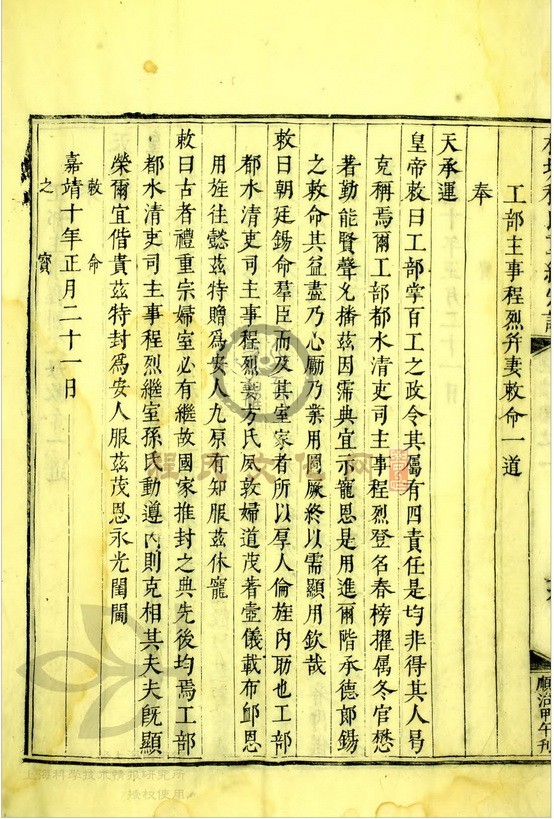 工部主事程烈并妻敕命一道
奉
天承運
皇帝敕曰工部掌百工之政令其屬有四責任是均非得其人曷
克稱焉爾工部都水清吏司主事程烈登名春榜擢屬冬官懋
著勤能賢聲允播茲因霈典宜示寵恩是用進爾階承德郎錫
之敕命其益盡乃心勵乃業用圖厥終以需顯用欽哉
敕曰朝廷錫命羣臣而及其室家者所以厚人倫旌內助也工部
都水清吏司主事程烈妻方氏夙敦婦道茂著壼儀載布卹恩
用旌往懿茲特贈爲安人九原有知服茲休寵
敕曰古者禮重宗婦室必有繼故國家推封之典先後均焉工部
都水清吏司主事程烈繼室孫氏動遵內則克相其夫夫旣顯
榮爾宜偕貴茲特封爲安人服茲茂恩永光閨閫
嘉靖十年正月二十一日
敕命
之寶
順治甲午刊
程氏文化网
上海科學技術情報研究所
授权使用